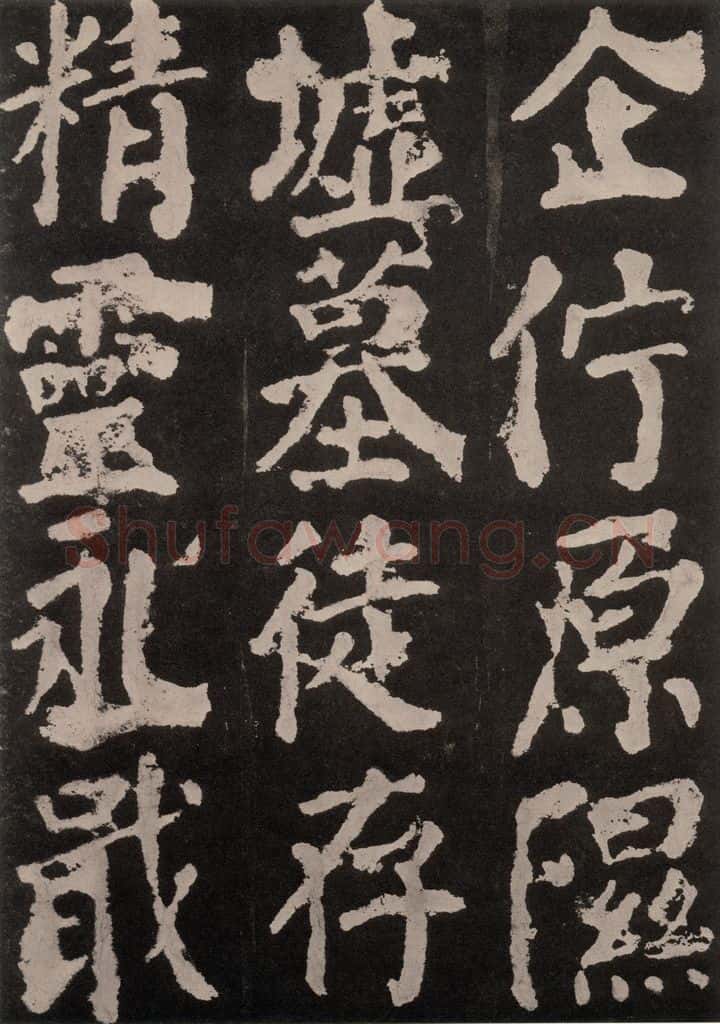 企佇原隰
墟墓徒存
精靈永戢
Shufawang.CN